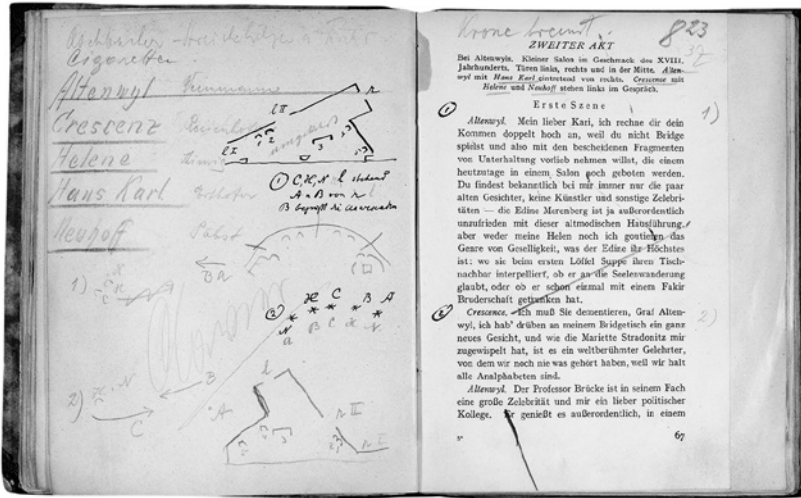 Cigaretten
Altenwyl
Crescenz
Helene
Hans Karl
Neuhoff
l II
r
l I
1 2 3
① C, H, N l stehend
A + B von r
B begrüßt die Anwesenden
BR
1)
② H C B A
N B C H N
a
B
2) N
C
A
l
r II
r I
Krone brennt.
823
32
ZWEITER AKT
Bei Altenwyls. Kleiner Salon im Geschmack des XVIII.
Jahrhunderts. Türen links, rechts und in der Mitte. Alten-
wyl mit Hans Karl eintretend von rechts. Crescence mit
Helene und Neuhoff stehen links im Gespräch.
Erste Szene
① Altenwyl. Mein lieber Kari, ich rechne dir dein 1)
Kommen doppelt hoch an, weil du nicht Bridge
spielst und also mit den bescheidenen Fragmenten
von Unterhaltung vorlieb nehmen willst, die einem
heutzutage in einem Salon noch geboten werden.
Du findest bekanntlich bei mir immer nur die paar
alten Gesichter, keine Künstler und sonstige Zelebri-
täten — die Edine Merenberg ist ja außerordentlich
unzufrieden mit dieser altmodischen Hausführung,
aber weder meine Helen noch ich goutieren das
Genre von Geselligkeit, was der Edine ihr Höchstes
ist: wo sie beim ersten Löffel Suppe ihren Tisch-
nachbar interpelliert, ob er an die Seelenwanderung
glaubt, oder ob er schon einmal mit einem Fakir
Bruderschaft getrunken hat.
② Crescence. Ich muß Sie dementieren, Graf Alten- 2)
wyl, ich hab' drüben an meinem Bridgetisch ein ganz
neues Gesicht, und wie die Mariette Stradonitz mir
zugewispelt hat, ist es ein weltberühmter Gelehrter,
von dem wir noch nie was gehört haben, weil wir halt
alle Analphabeten sind.
Altenwyl. Der Professor Brücke ist in seinem Fach
eine große Zelebrität und mir ein lieber politischer
Kollege. Er genießt es außerordentlich, in einem
5*
67